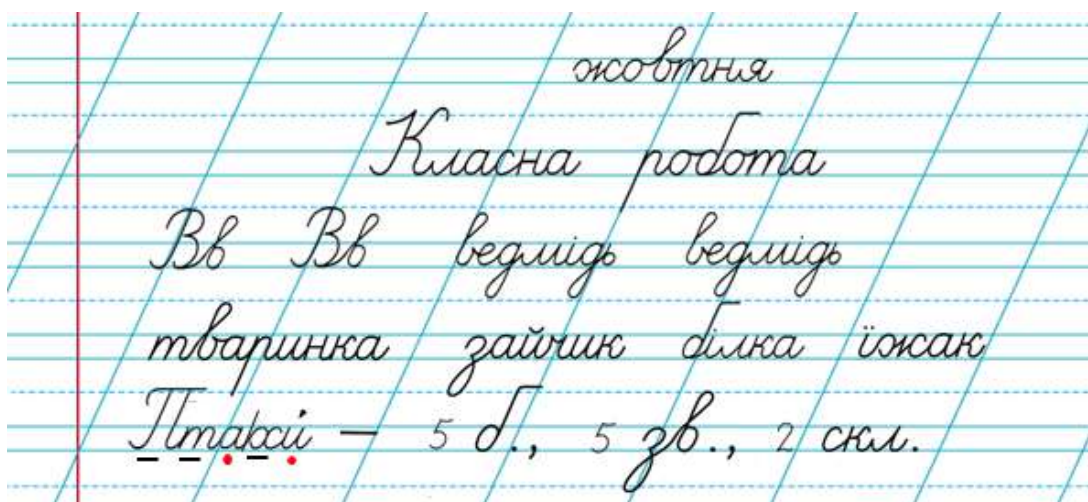 жовтня
Класна робота
Вв Вв ведмідь ведмідь
тваринка зайчик білка їжак
Птахи́ — 5 б., 5 зв., 2 скл.